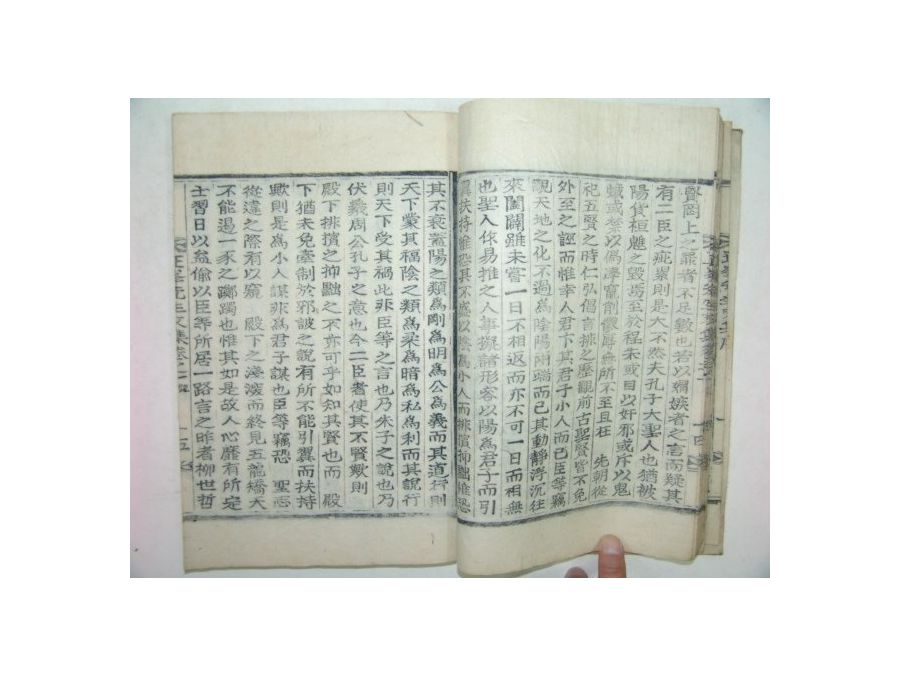 賢罔上之罪者不足數也若以猾媄者之言而疑其
有二臣之疵累則是大不然夫孔子大聖人也猶被
陽貨桓魋之毀焉至於程朱或目以奸邪或斥以鬼
蜮或禁以僞學竄削僇辱無所不至且在 先朝從
祀五賢之時仁弘倡言排之歷觀前古聖賢皆不免
外至之誣而惟幸人君卞其君子小人而已臣等竊
觀天地之化不過爲陰陽兩端而已其動靜浮沉往
來闔闢雖未嘗一日不相返而亦不可一日而相無
也聖人作易推之人事擬諸形容以陽爲君子而引
翼扶持惟恐其不盛以陰爲小人而排擯抑黜惟恐
其不衰蓋陽之類爲剛爲明爲公爲義而其道行則
天下蒙其福陰之類爲柔爲暗爲私爲利而其說行
則天下受其禍此非臣等之言也乃朱子之說也乃
伏羲周公孔子之意也今二臣者使其不賢歟則
殿下排擯之抑黜之不亦可乎如知其賢也而 殿
下猶未免牽制於邪詖之說有所不能引翼而扶持
歟則是爲小人謀非爲君子謀也臣等竊恐 聖志
從違之際有以窺 殿下之淺深而終見五龍矯天
不能過一豕之躑躅也惟其如是故人心靡有所定
士習日以益偸以臣等所居一路言之昨者柳世哲
先生文集卷之二
十五